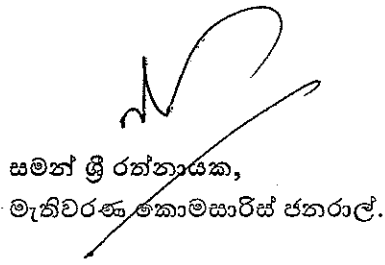 සමන් ශ්‍රී රත්නායක,
මැතිවරණ කොමසාරිස් ජනරාල්.